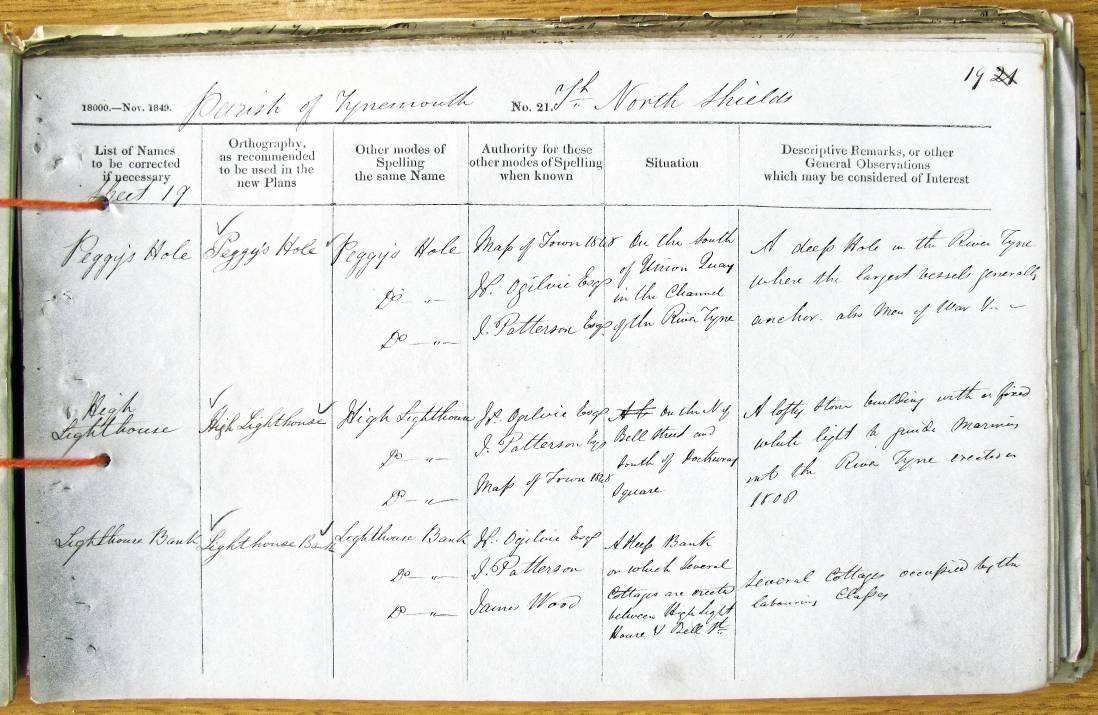 19 21
18000.—Nov. 1849. Parish of Tynemouth No. 21. Th North Shields
List of Names
to be corrected
if necessary
Sheet 19
Orthography,
as recommended
to be used in the
new Plans
Other modes of
Spelling
the same Name
Authority for these
other modes of Spelling
when known
Situation
Descriptive Remarks, or other
General Observations
which may be considered of Interest
Peggy's Hole
Peggy's Hole
Peggy's Hole
Do — " —
Do — " —
Map of Town 1848
W. Ogilvie Esqr
J. Patterson Esqr
On the South
of Union Quay
in the Channel
of the River Tyne
A deep Hole in the River Tyne
where the largest vessels generally
anchor. also Men of War &
High
Lighthouse
High Lighthouse
High Lighthouse
Do — " —
Do — " —
W. Ogilvie Esqr
J. Patterson Esqr
Map of Town 1848
On the N of
Bell Street and
South of Dockwray
Square
A lofty Stone building with a fixed
white light to guide Mariners
into the River Tyne erected in
1808
Lighthouse Bank
Lighthouse Bank
Lighthouse Bank
Do — " —
Do — " —
W. Ogilvie Esqr
J. Patterson
James Wood
A Steep Bank
on which Several
Cottages are erected
between High Light
House & Bell St.
Several Cottages occupied by the
labouring Classes